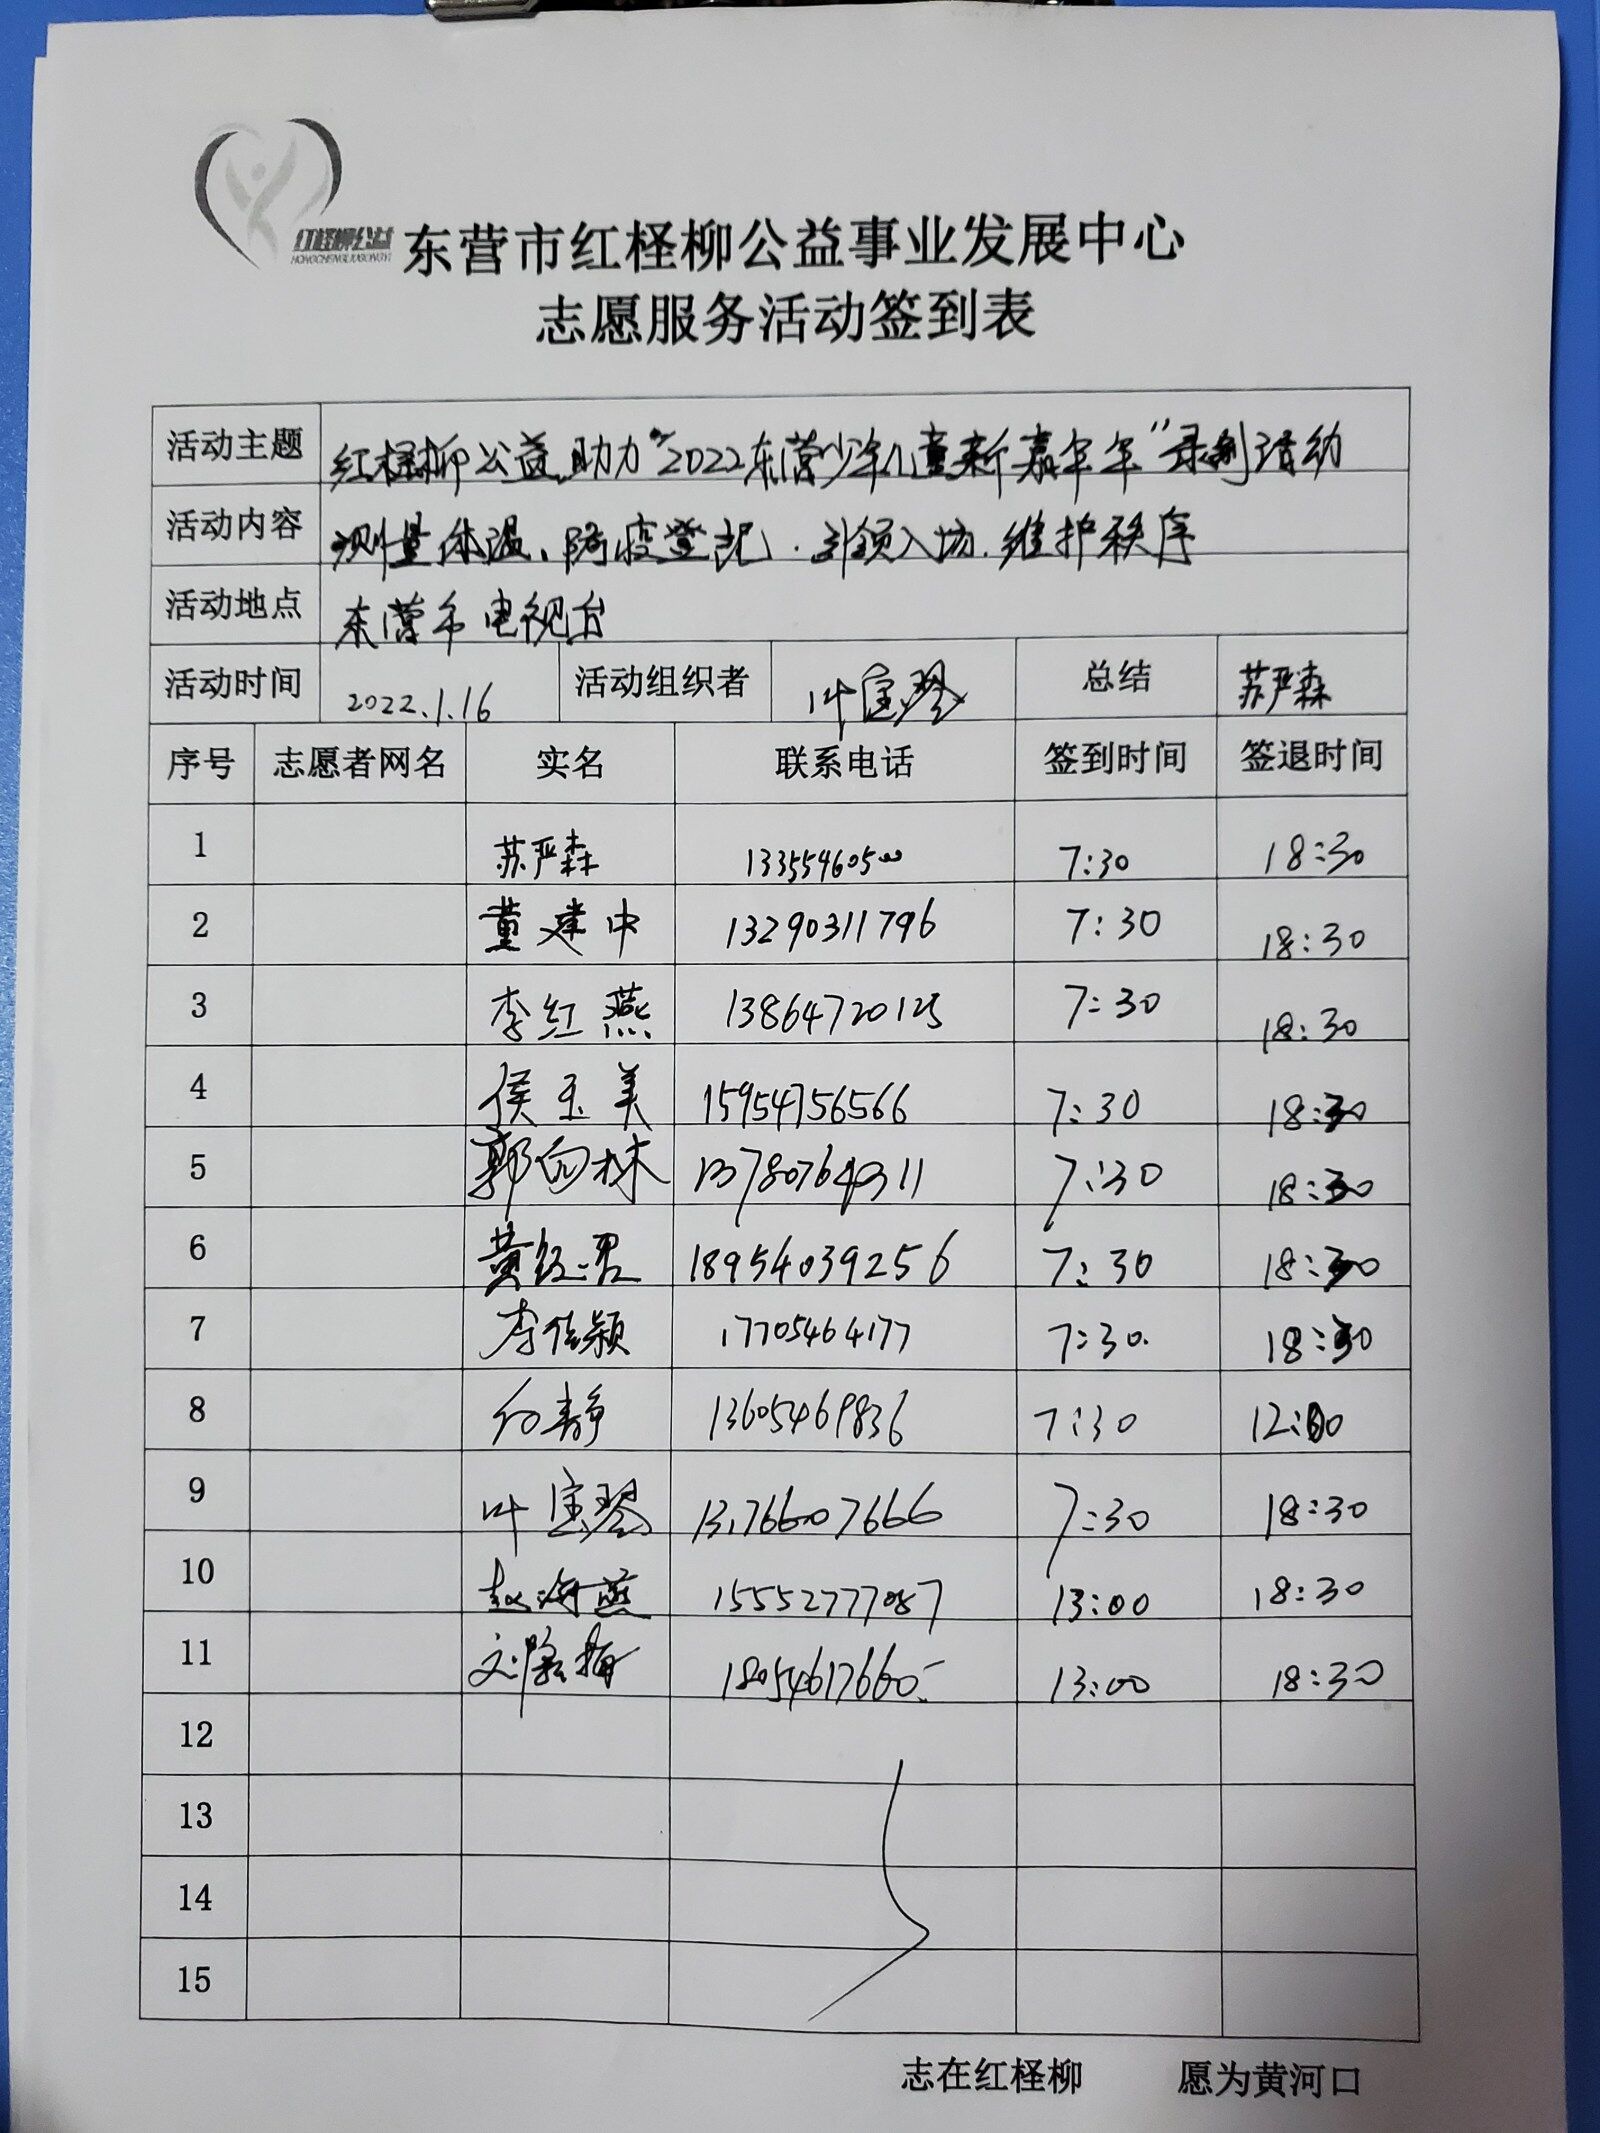 红柽柳公益
HONGCHENGLIUGONGYI
东营市红柽柳公益事业发展中心
志愿服务活动签到表
活动主题 红柽柳公益助力“2022东营少年儿童新嘉年华”录制活动
活动内容 测量体温、防疫登记.引领入场.维护秩序
活动地点 东营市电视台
活动时间 2022.1.16 活动组织者 叶宝琴 总结 苏严森
序号 志愿者网名 实名 联系电话 签到时间 签退时间
1 苏严森 13355460500 7:30 18:30
2 董建中 13290311796 7:30 18:30
3 李红燕 13864720125 7:30 18:30
4 侯玉美 15954756566 7:30 18:30
5 郭向林 7:30 18:30
6 18954039256 7:30 18:30
7 李佳颖 17705464177 7:30 18:30
8 13605469836 7:30 12:00
9 叶宝琴 13766607666 7:30 18:30
10 赵海燕 15552777087 13:00 18:30
11 18054617660 13:00 18:30
12
13
14
15
志在红柽柳 愿为黄河口